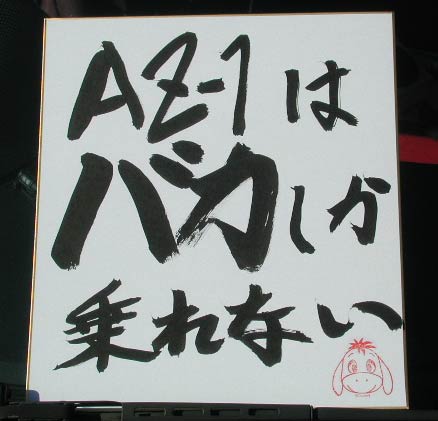 AZ-1は
バカしか
乗れない